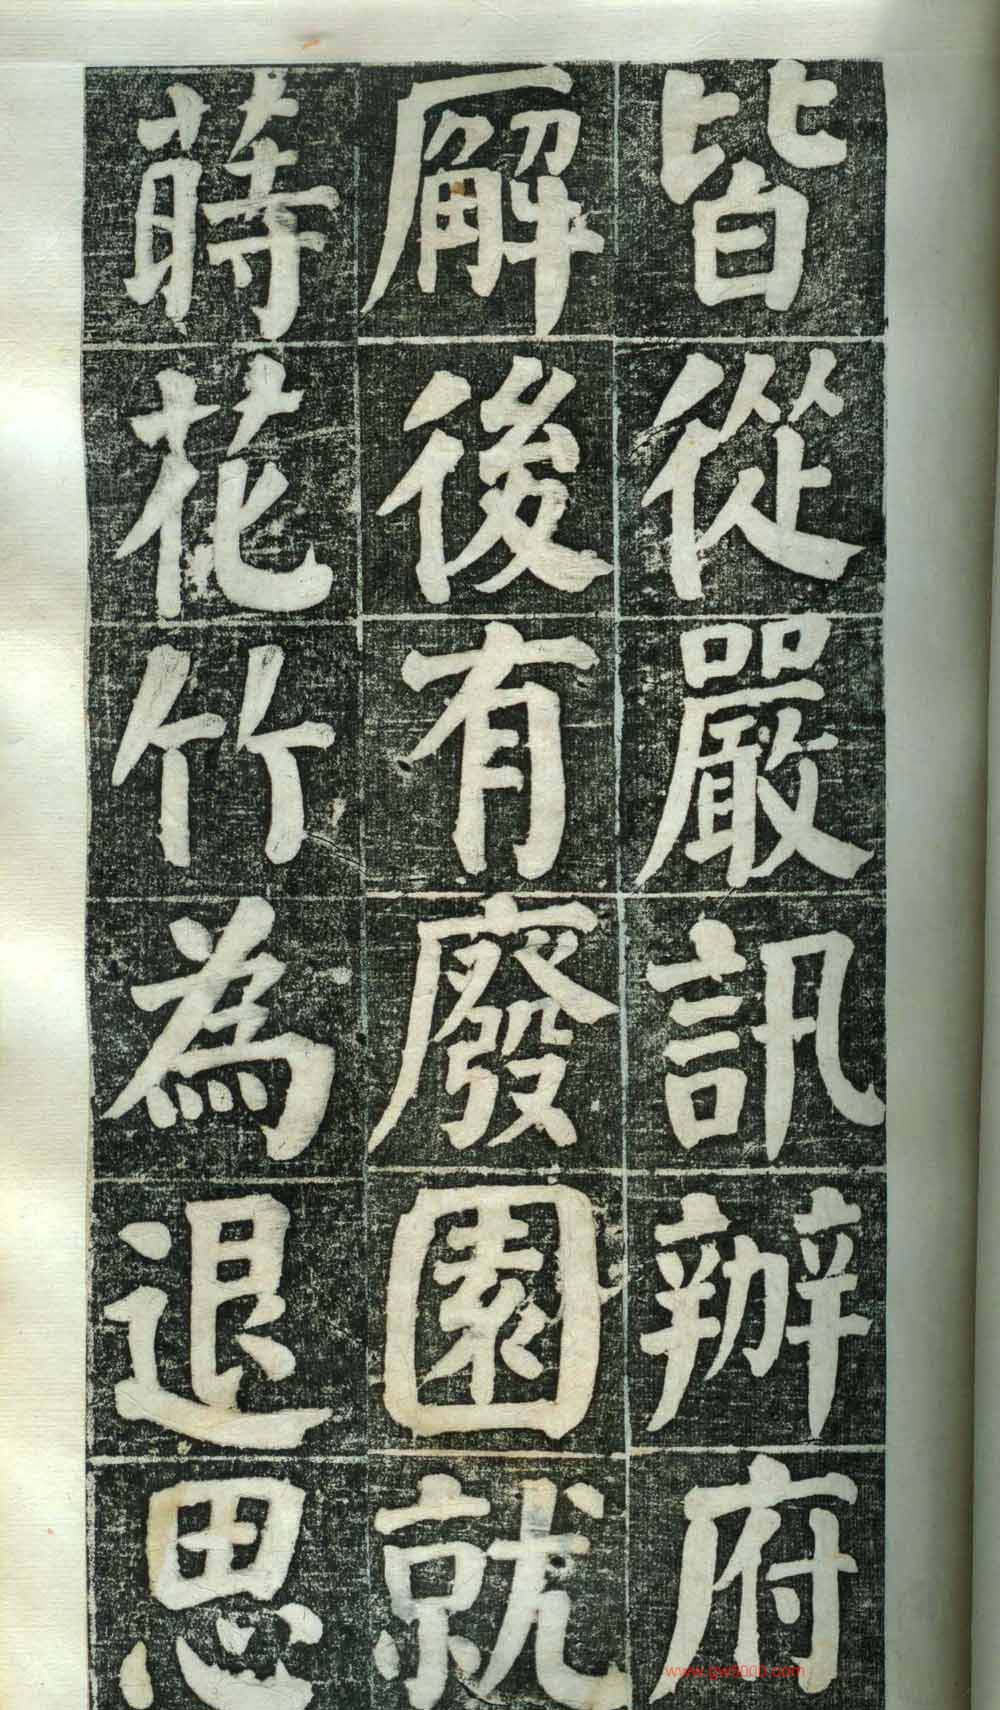 皆從嚴訊辦府
廨後有廢園就
蒔花竹為退思
www.gw5000.com